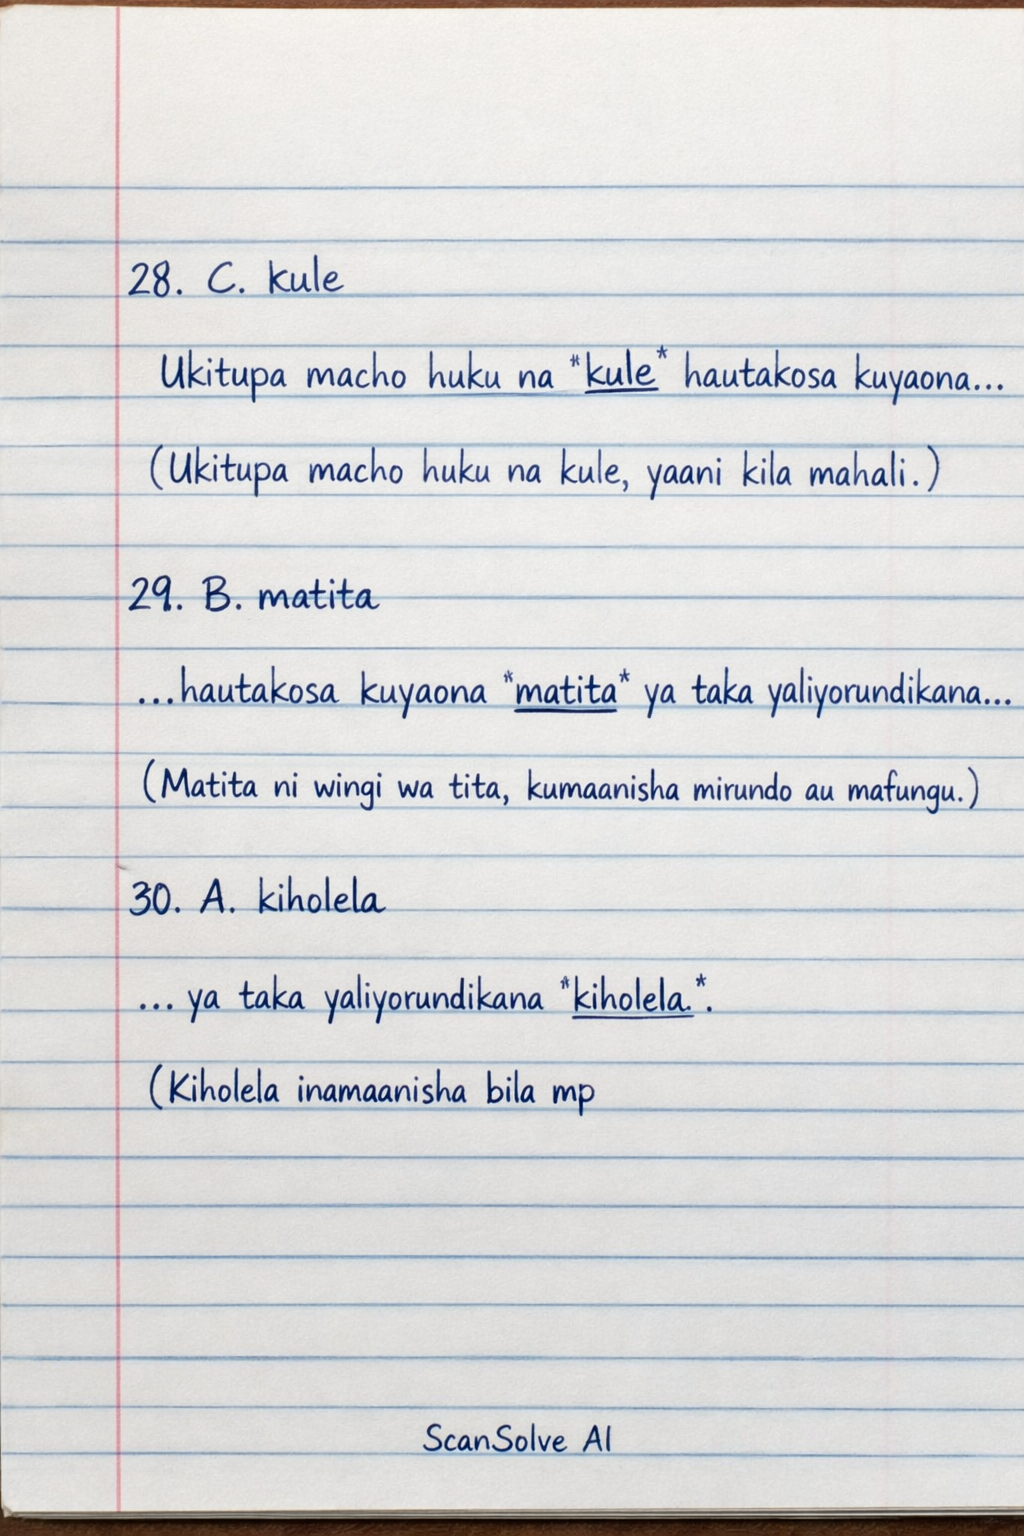 28. C. kule
Ukitupa macho huku na *kule* hautakosa kuyaona...
(Ukitupa macho huku na kule, yaani kila mahali.)
29. B. matita
...hautakosa kuyaona *matita* ya taka yaliyorundikana...
(Matita ni wingi wa tita, kumaanisha mirundo au mafungu.)
30. A. kiholela
... ya taka yaliyorundikana *kiholela.*.
(Kiholela inamaanisha bila mp
ScanSolve AI